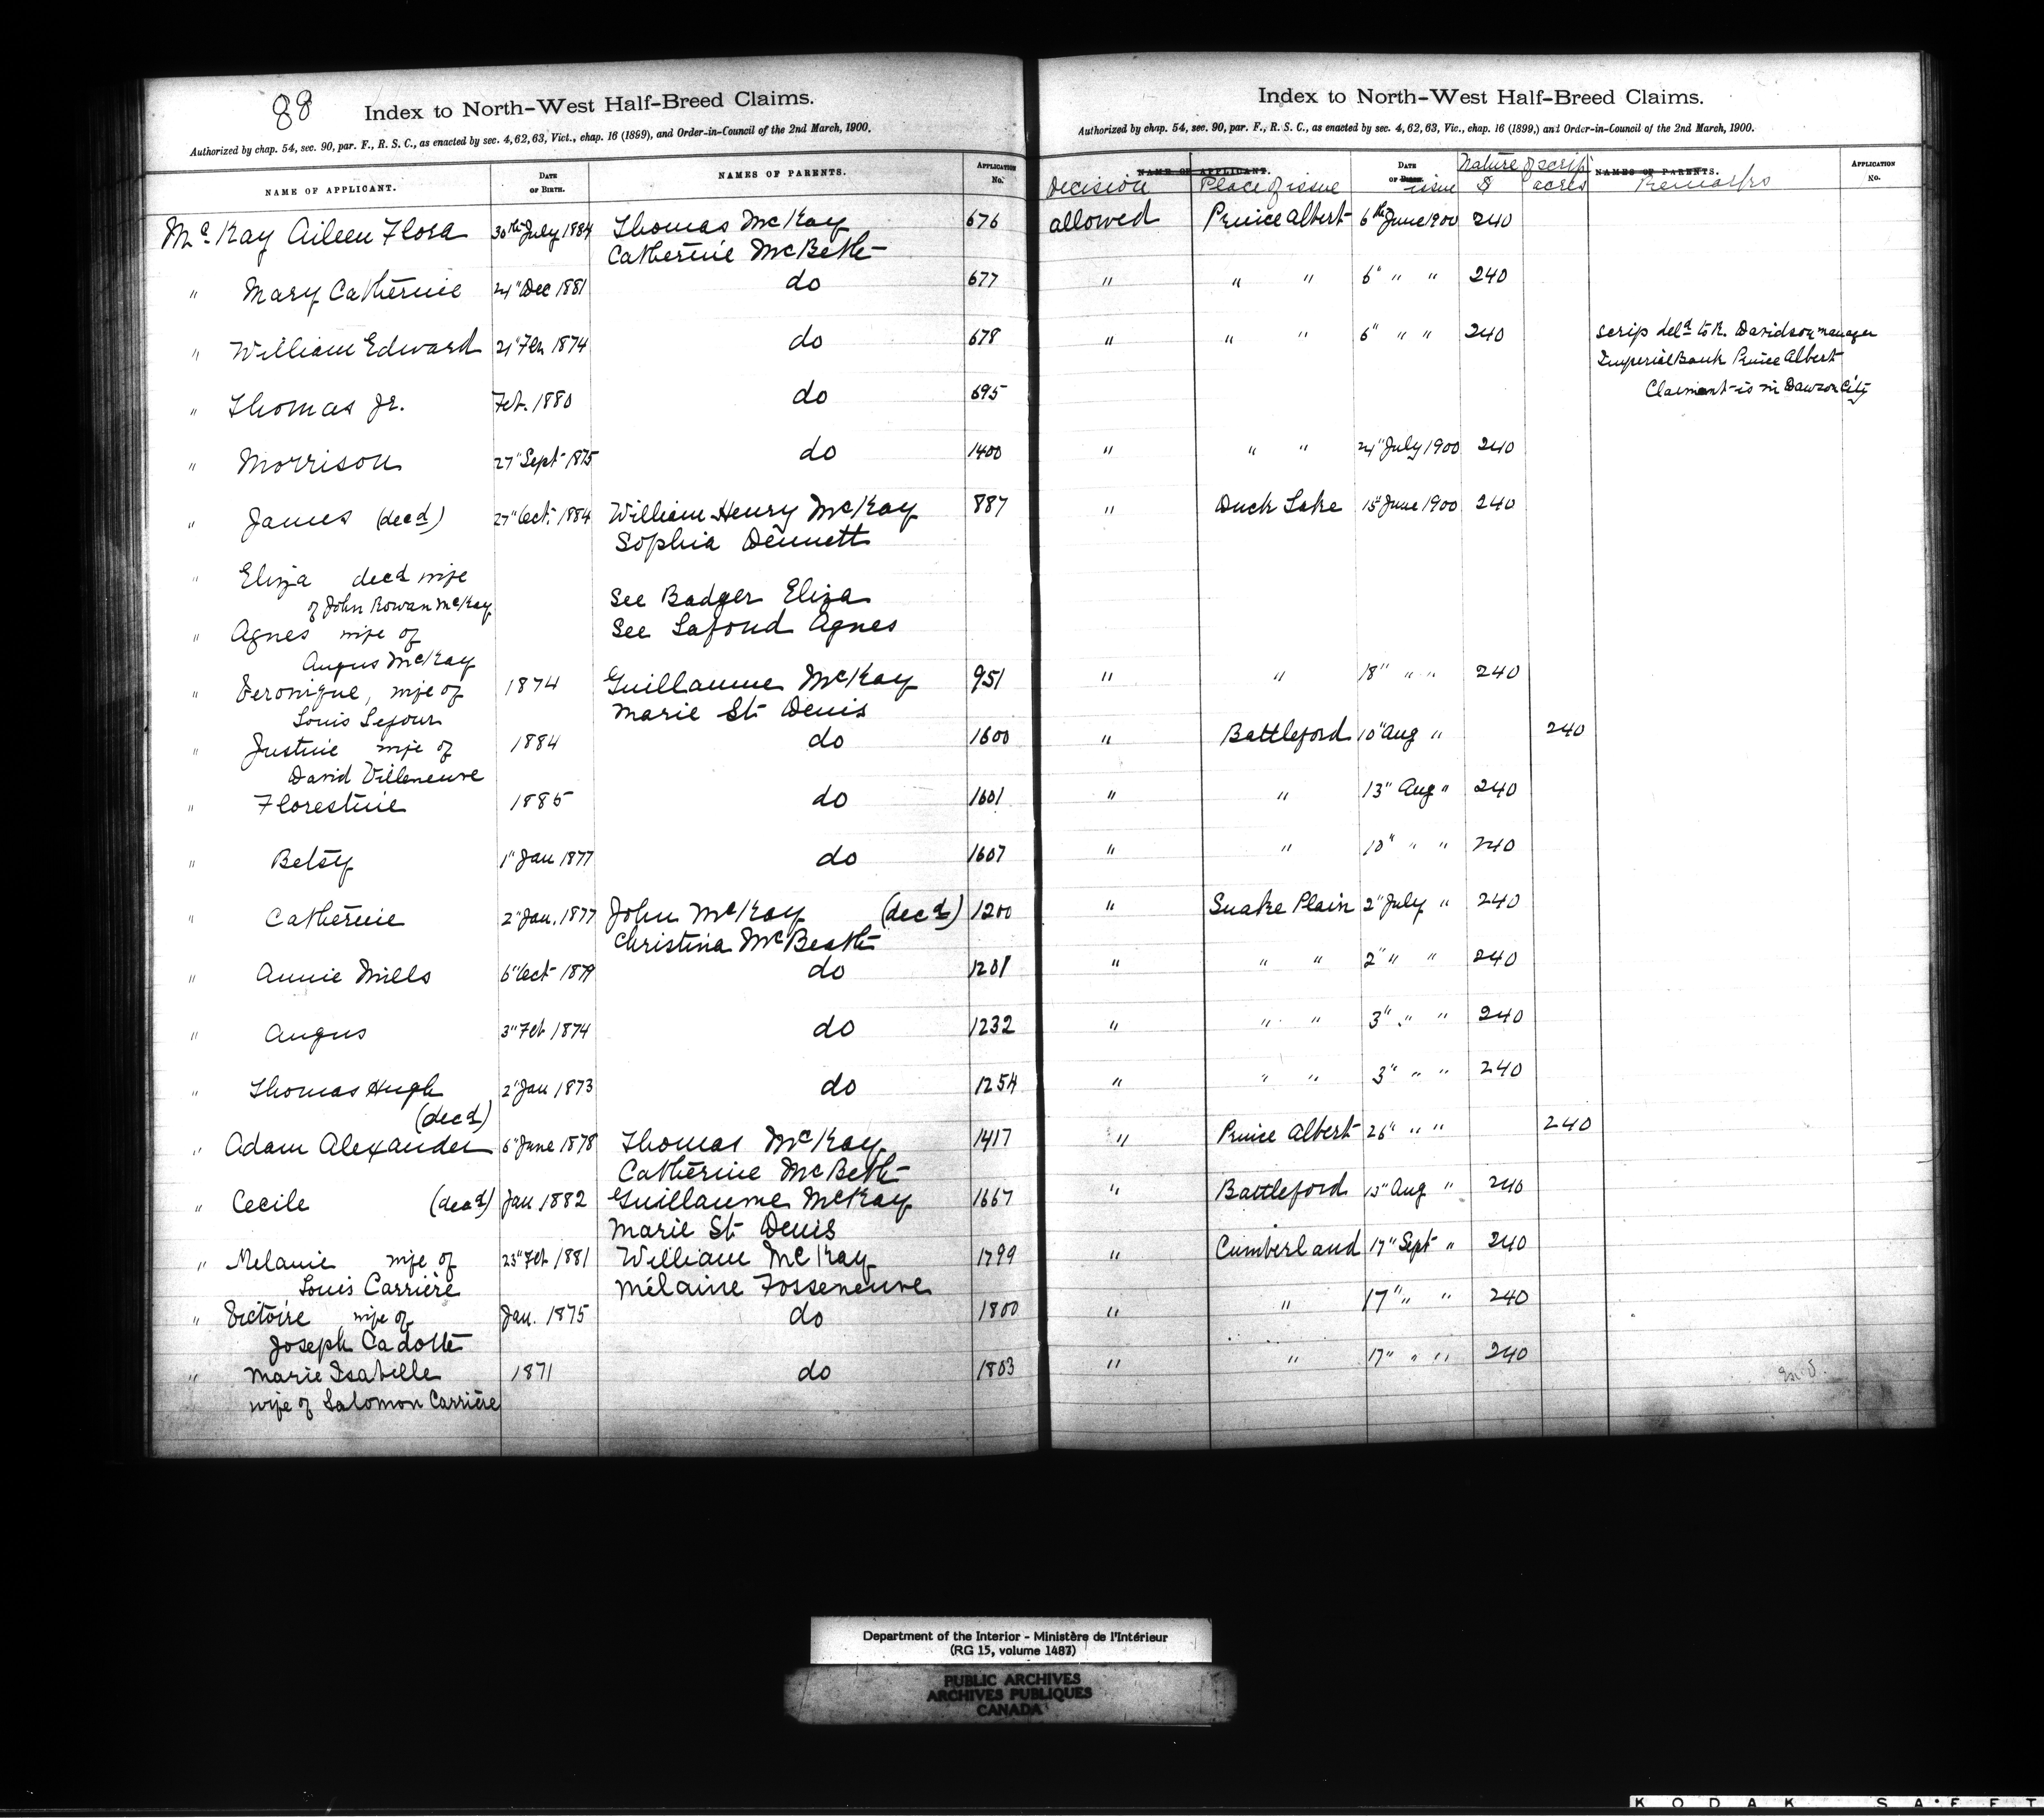 88
Index to North-West Half-Breed Claims.
Authorized by chap. 54, sec. 90, par. F., R. S. C., as enacted by sec. 4, 62, 63, Vict., chap. 16 (1899), and Order-in-Council of the 2nd March, 1900.
NAME OF APPLICANT. DATE OF BIRTH. NAMES OF PARENTS. APPLICATION No.
Index to North-West Half-Breed Claims.
Authorized by chap. 54, sec. 90, par. F., R. S. C., as enacted by sec. 4, 62, 63, Vic., chap. 16 (1899,) and Order-in-Council of the 2nd March, 1900.
NAME OF APPLICANT. DATE OF Nature of scrip NAMES OF PARENTS. APPLICATION No.
Decision Place of issue issue $ acres Remarks
McKay Aileen Flora 30th July 1884 Thomas McKay 676 allowed Prince Albert 6th June 1900 240
Catherine McBeth
" Mary Catherine 24" Dec 1881 do 677 " " " 6" " " 240
" William Edward 21" Feb 1874 do 678 " " " 6" " " 240 Scrip deld to R. Davidson manager
Imperial Bank Prince Albert
Claimant is in Dawson City
" Thomas Jr. Feb. 1880 do 695
" Morrison 27" Sept 1875 do 1400 " " " 24" July 1900 240
" James (decd) 27" Oct. 1884 William Henry McKay 887 " Duck Lake 15" June 1900 240
Sophia Dennett
" Eliza decd wife
of John Rowan McKay See Badger Eliza
" Agnes wife of See Lafond Agnes
Angus McKay
" Veronique, wife of 1874 Guillaume McKay 951 " " 18" " " 240
Louis Lejour Marie St Denis
" Justine wife of 1884 do 1600 " Battleford 10" Aug " 240
David Villeneuve
" Florestine 1885 do 1601 " " 13" Aug " 240
" Betsy 1" Jan 1877 do 1607 " " 10" " " 240
" Catherine 2" Jan. 1877 John McKay (decd) 1200 " Snake Plain 2" July " 240
Christina McBeath
" Annie Mills 6" Oct 1879 do 1201 " " " 2" " " 240
" Angus 3" Feb 1874 do 1232 " " " 3" " " 240
" Thomas Hugh 2" Jan 1873 do 1254 " " " 3" " " 240
(decd)
" Adam Alexander 6" June 1878 Thomas McKay 1417 " Prince Albert 26" " " 240
Catherine McBeth
" Cecile (decd) Jan 1882 Guillaume McKay 1667 " Battleford 13" Aug " 240
Marie St Denis
" Melanie wife of 23" Feb 1881 William McKay 1799 " Cumberland 17" Sept " 240
Louis Carrière Mélaine Fosseneuve
" Victoire wife of Jan. 1875 do 1800 " " 17" " " 240
Joseph Cadotte
" Marie Isabelle 1871 do 1803 " " 17" " " 240
wife of Salomon Carrière
Department of the Interior - Ministère de l'Intérieur
(RG 15, volume 1487)
PUBLIC ARCHIVES
ARCHIVES PUBLIQUES
CANADA
KODAK SAFET